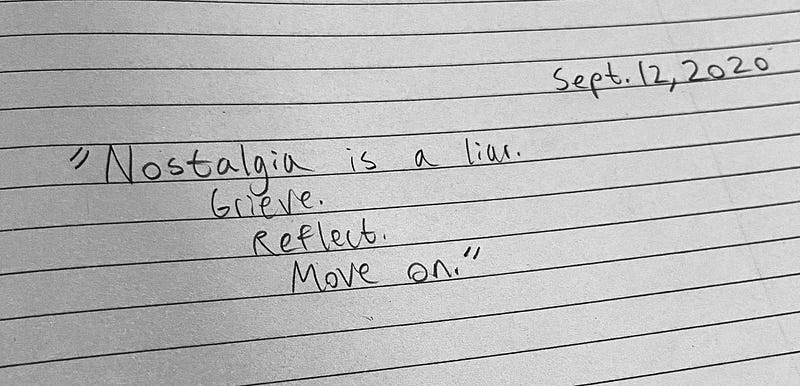 Sept. 12, 2020
"Nostalgia is a liar.
Grieve.
Reflect.
Move on."